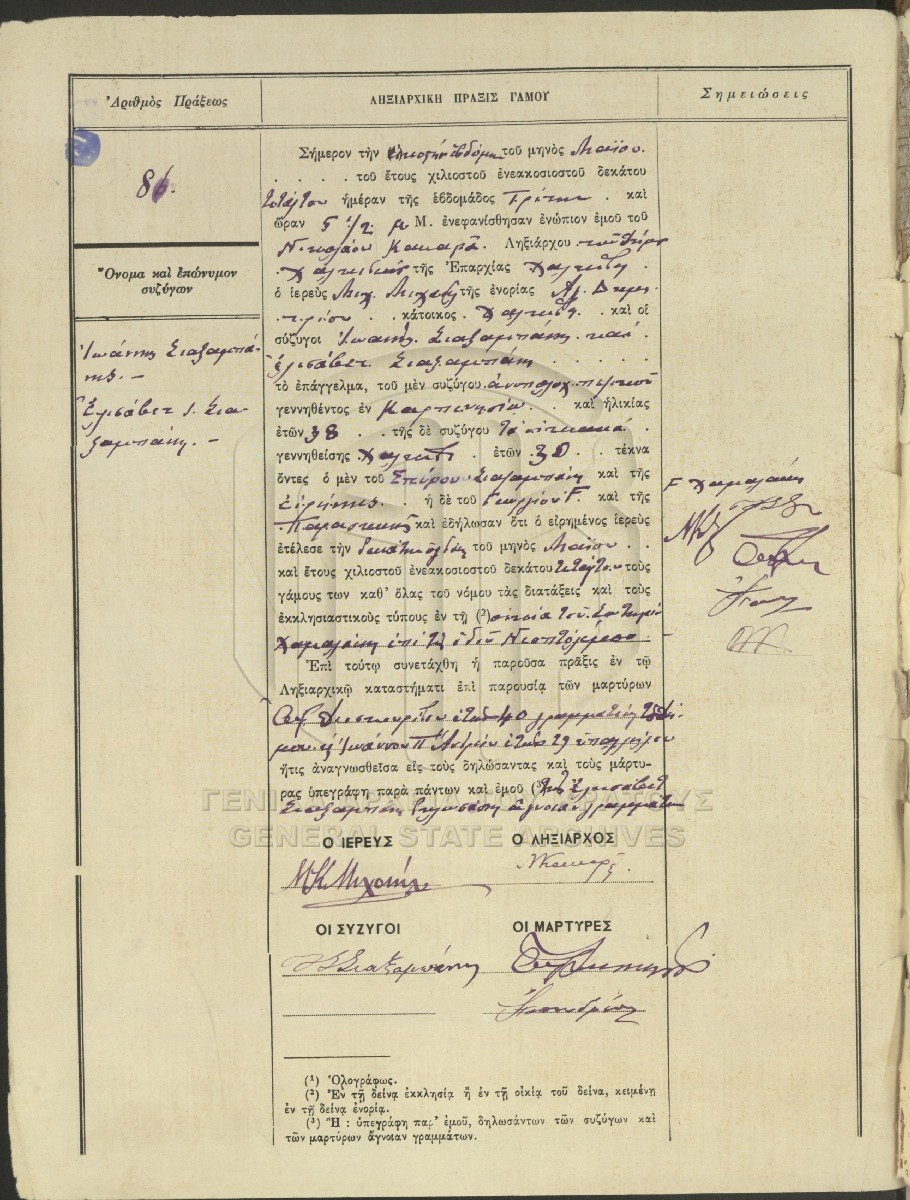 Ἀριθμὸς Πράξεως
ΛΗΞΙΑΡΧΙΚΗ ΠΡΑΞΙΣ ΓΑΜΟΥ
Σημειώσεις
86.
Ὄνομα καὶ ἐπώνυμον
συζύγων
Ἰωάννης Σιαξαμπά-
νης. —
Ἐλισάβετ Ι. Σια-
ξαμπάνη. —
Σήμερον τὴν εἰκοστὴν ἑβδόμην τοῦ μηνὸς Μαΐου.
. . . . τοῦ ἔτους χιλιοστοῦ ἐνεακοσιοστοῦ δεκάτου
τετάρτου ἡμέραν τῆς ἑβδομάδος Τρίτην . καὶ
ὥραν 5 1/2 μ Μ. ἐνεφανίσθησαν ἐνώπιον ἐμοῦ τοῦ
Νικολάου Ληξιάρχου τοῦ Δήμου
Χαλκιδέων τῆς Ἐπαρχίας Χαλκίδος .
ὁ ἱερεὺς Μιχ. Μιχαὴλ τῆς ἐνορίας Ἁγ. Δημη-
τρίου . . κάτοικος . Χαλκίδος . . καὶ οἱ
σύζυγοι Ἰωάννης. Σιαξαμπάνης . καὶ .
Ἐλισάβετ. Σιαξαμπάνη . . . . . .
τὸ ἐπάγγελμα, τοῦ μὲν συζύγου . πεζικοῦ
γεννηθέντος ἐν Καρπενησίῳ . . καὶ ἡλικίας
ἐτῶν 38 . . τῆς δὲ συζύγου τὰ οἰκιακά .
γεννηθείσης Χαλκίδι . ἐτῶν . 30 . . τέκνα
ὄντες ὁ μὲν τοῦ Σπύρου Σιαξαμπάνη καὶ τῆς
Εἰρήνης . . ἡ δὲ τοῦ Γεωργίου Γ. καὶ τῆς
Παρασκευῆς καὶ ἐδήλωσαν ὅτι ὁ εἰρημένος ἱερεὺς
ἐτέλεσε τὴν δεκάτην ὀγδόην τοῦ μηνὸς Μαΐου . .
καὶ ἔτους χιλιοστοῦ ἐνεακοσιοστοῦ δεκάτου τετάρτου τοὺς
γάμους των καθ' ὅλας τοῦ νόμου τὰς διατάξεις καὶ τοὺς
ἐκκλησιαστικοὺς τύπους ἐν τῇ (²) οἰκίᾳ τοῦ
Χαμαλάκη ἐπὶ τῆς ὁδοῦ Νεοπτολέμου —
Ἐπὶ τούτῳ συνετάχθη ἡ παροῦσα πρᾶξις ἐν τῷ
Ληξιαρχικῷ καταστήματι ἐπὶ παρουσίᾳ τῶν μαρτύρων
ἐτῶν 40 γραμματέως τοῦ Δή-
μου καὶ Ἰωάννου Π. ἐτῶν 29 ὑπαλλήλου
ἥτις ἀναγνωσθεῖσα εἰς τοὺς δηλώσαντας καὶ τοὺς μάρτυ-
ρας ὑπεγράφη παρὰ πάντων καὶ ἐμοῦ (³) τῆς Ἐλισάβετ
Σιαξαμπάνη δηλωσάσης ἄγνοιαν γραμμάτων
Γ Χαμαλάκης
ΓΕΝΙΚΑ ΑΡΧΕΙΑ ΤΟΥ ΚΡΑΤΟΥΣ
GENERAL STATE ARCHIVES
Ο ΙΕΡΕΥΣ
Ο ΛΗΞΙΑΡΧΟΣ
Μ Κ Μιχαήλ
ΟΙ ΣΥΖΥΓΟΙ
ΟΙ ΜΑΡΤΥΡΕΣ
Ι Σ Σιαξαμπάνης
(¹) Ὁλογράφως.
(²) Ἐν τῇ δεῖνα ἐκκλησίᾳ ἢ ἐν τῇ οἰκίᾳ τοῦ δεῖνα, κειμένῃ
ἐν τῇ δεῖνα ἐνορίᾳ.
(³) Ἢ : ὑπεγράφη παρ' ἐμοῦ, δηλωσάντων τῶν συζύγων καὶ
τῶν μαρτύρων ἄγνοιαν γραμμάτων.